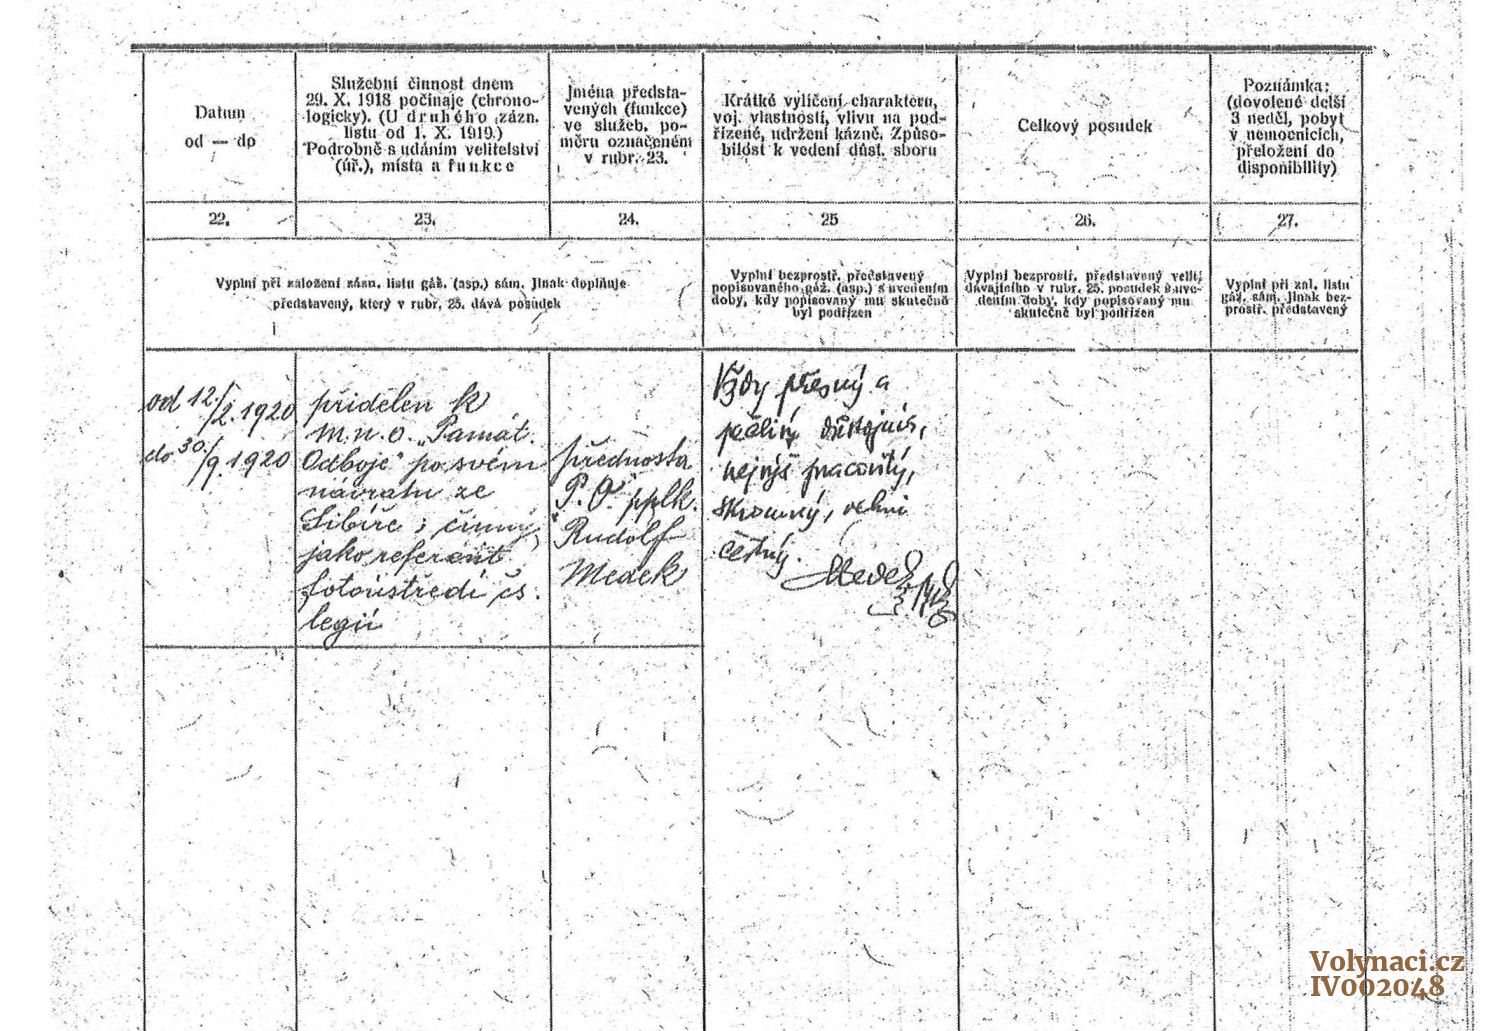 Datum
od — do
Služební činnost dnem
29. X. 1918 počínaje (chrono-
logicky). (U druhého zázn.
listu od 1. X. 1919.)
Podrobně s udáním velitelství
(úř.), místa a funkce
Jména předsta-
vených (funkce)
ve služeb. po-
měru označeném
v rubr. 23.
Krátké vylíčení charakteru,
voj. vlastností, vlivu na pod-
řízené, udržení kázně. Způso-
bilost k vedení důst. sboru
Celkový posudek
Poznámka:
(dovolené delší
3 neděl, pobyt
v nemocnicích,
přeložení do
disponibility)
22.
23.
24.
25
26.
27.
Vyplní při založení zázn. listu gáž. (asp.) sám. Jinak doplňuje
představený, který v rubr. 25. dává posudek
Vyplní bezprostř. představený
popisovaného gáž. (asp.) s uvedením
doby, kdy popisovaný mu skutečně
byl podřízen
Vyplní bezprostř. představený velit.
dávajícího v rubr. 25. posudek s uve-
dením doby, kdy popisovaný mu
skutečně byl podřízen
Vyplní při zal. listu
gáž. sám. Jinak bez-
prostř. představený
od 12./2. 1920
do 30./9. 1920
přidělen k
m.n.o. „Památ.
Odboje" po svém
návratu ze
Sibíře; činný
jako referent
fotoústředí čs.
legií
přednosta
„P.O." pplk.
Rudolf
Medek
Vždy přesný a
pečlivý důstojník,
nejvýš pracovitý,
skromný, velmi
čestný.
Medek
Volynaci.cz
IV002048